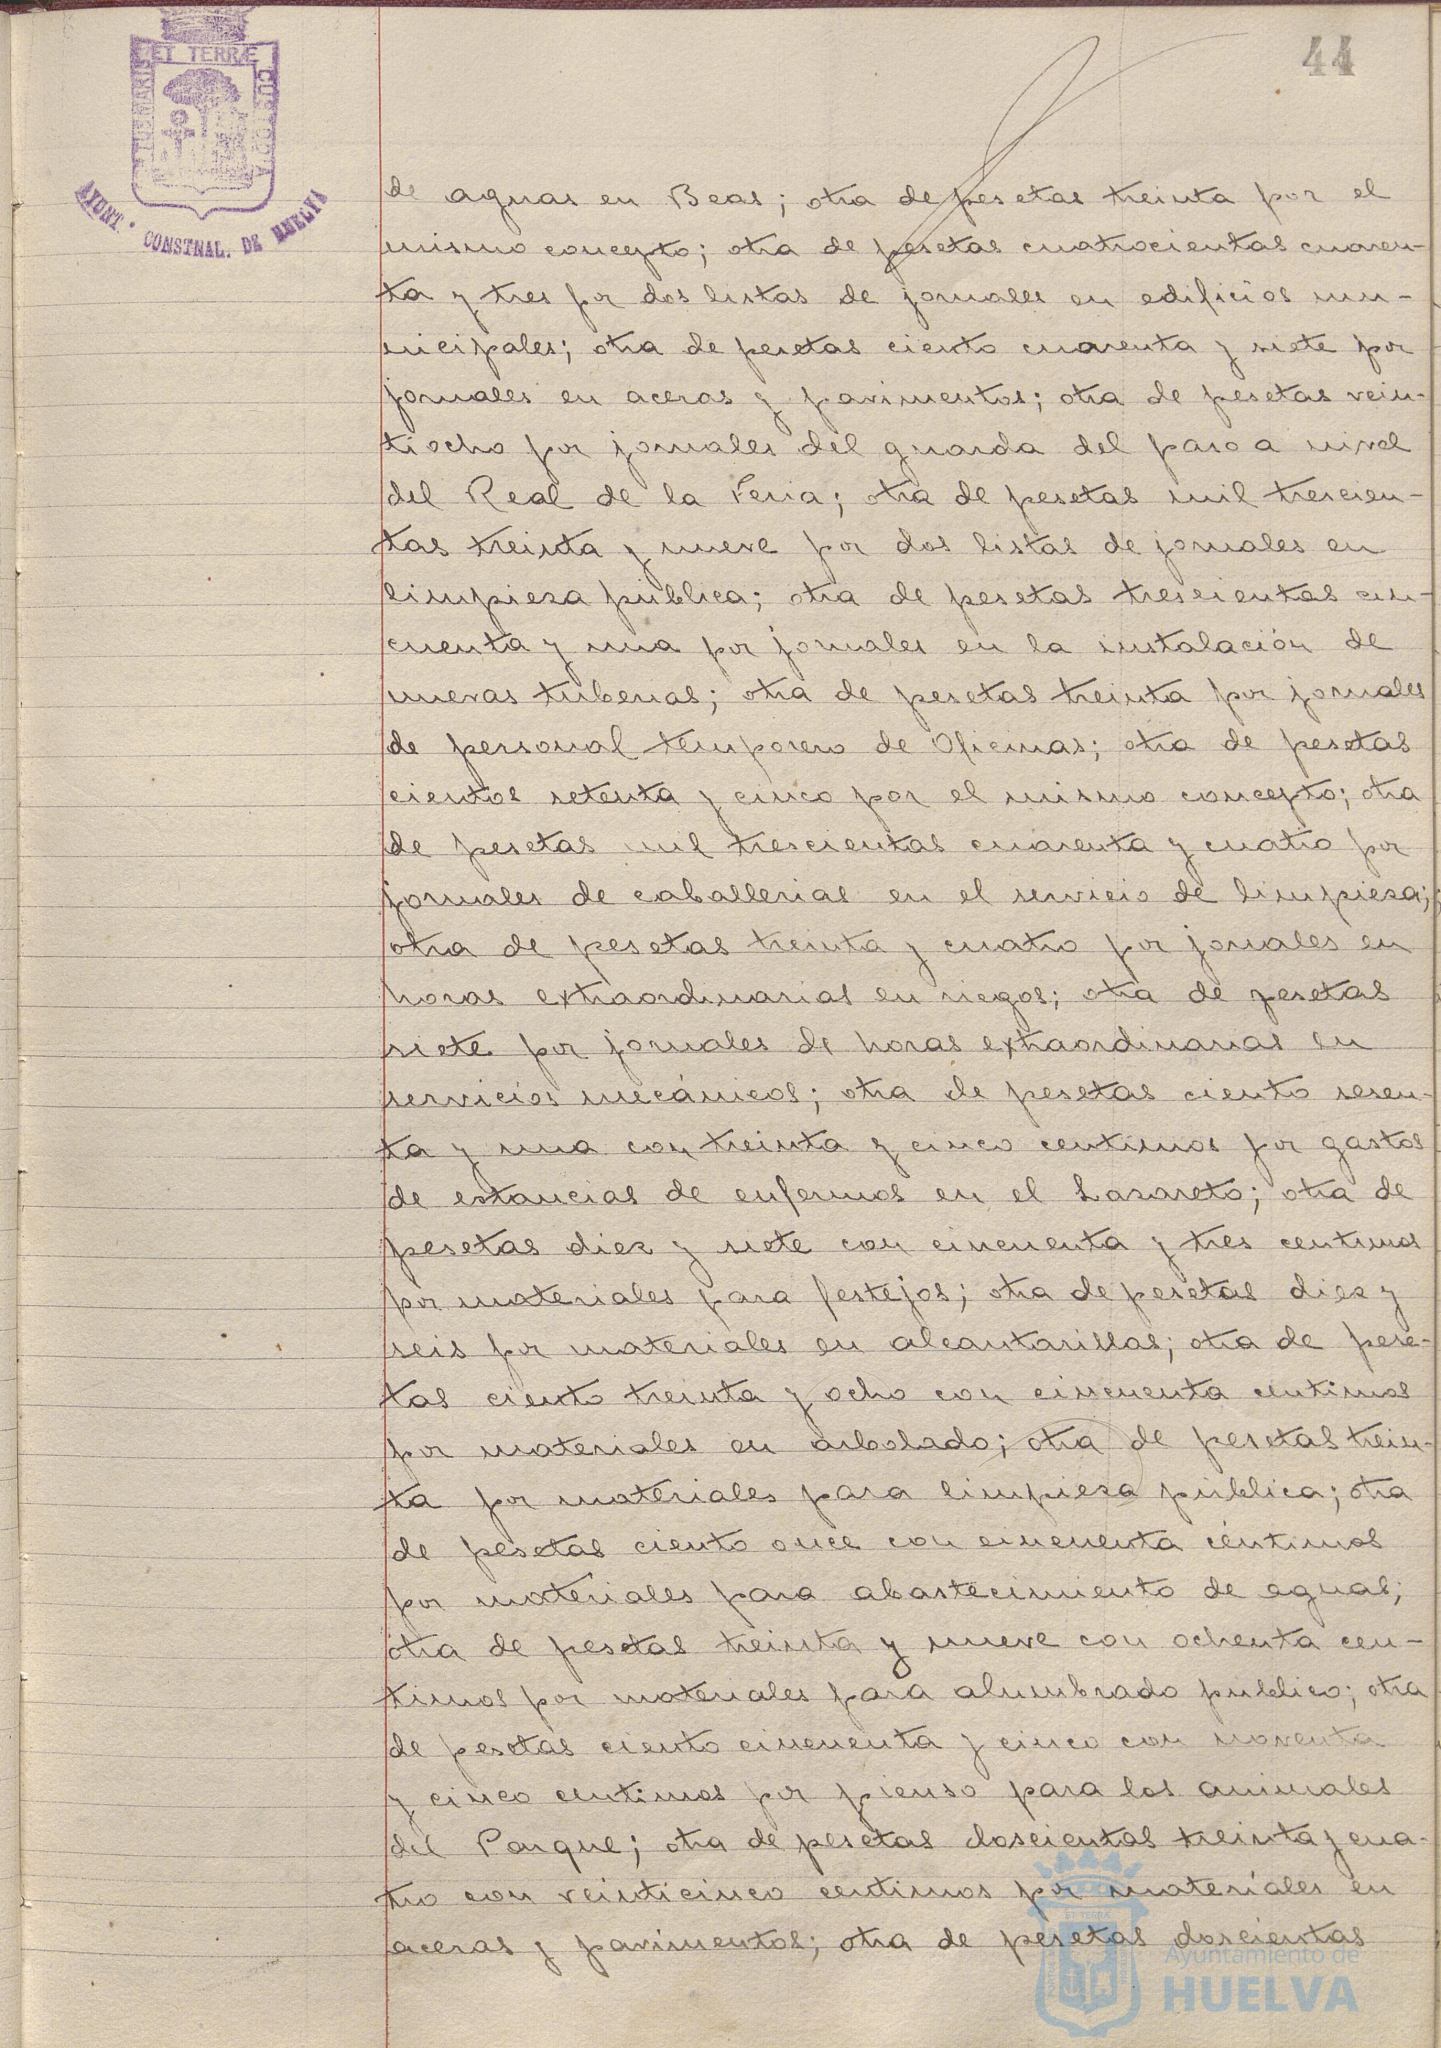 44
PORTUS MARIS ET TERRÆ CUSTODIA
AYUNT. CONSTNAL. DE HUELVA
de aguas en Beas; otra de pesetas treinta por el
mismo concepto; otra de pesetas cuatrocientas cuaren-
ta y tres por dos listas de jornales en edificios mu-
nicipales; otra de pesetas ciento cuarenta y siete por
jornales en aceras y pavimentos; otra de pesetas vein-
tiocho por jornales del guarda del paso a nivel
del Real de la Feria; otra de pesetas mil trescien-
tas treinta y nueve por dos listas de jornales en
limpieza pública; otra de pesetas trescientas cin-
cuenta y una por jornales en la instalación de
nuevas tuberias; otra de pesetas treinta por jornales
de personal temporero de Oficinas; otra de pesetas
cientos setenta y cinco por el mismo concepto; otra
de pesetas mil trescientas cuarenta y cuatro por
jornales de caballerias en el servicio de limpieza;
otra de pesetas treinta y cuatro por jornales en
horas extraordinarias en riegos; otra de pesetas
siete por jornales de horas extraordinarias en
servicios mecánicos; otra de pesetas ciento sesen-
ta y una con treinta y cinco centimos por gastos
de estancias de enfermos en el Lazareto; otra de
pesetas diez y siete con cincuenta y tres centimos
por materiales para festejos; otra de pesetas diez y
seis por materiales en alcantarillas; otra de pese-
tas ciento treinta y ocho con cincuenta centimos
por materiales en arbolado; otra de pesetas trein-
ta por materiales para limpieza pública; otra
de pesetas ciento once con cincuenta céntimos
por materiales para abastecimiento de aguas;
otra de pesetas treinta y nueve con ochenta cen-
timos por materiales para alumbrado publico; otra
de pesetas ciento cincuenta y cinco con noventa
y cinco centimos por pienso para los animales
del Parque; otra de pesetas doscientas treinta y cua-
tro con veinticinco centimos por materiales en
aceras y pavimentos; otra de pesetas doscientas
Ayuntamiento de
HUELVA